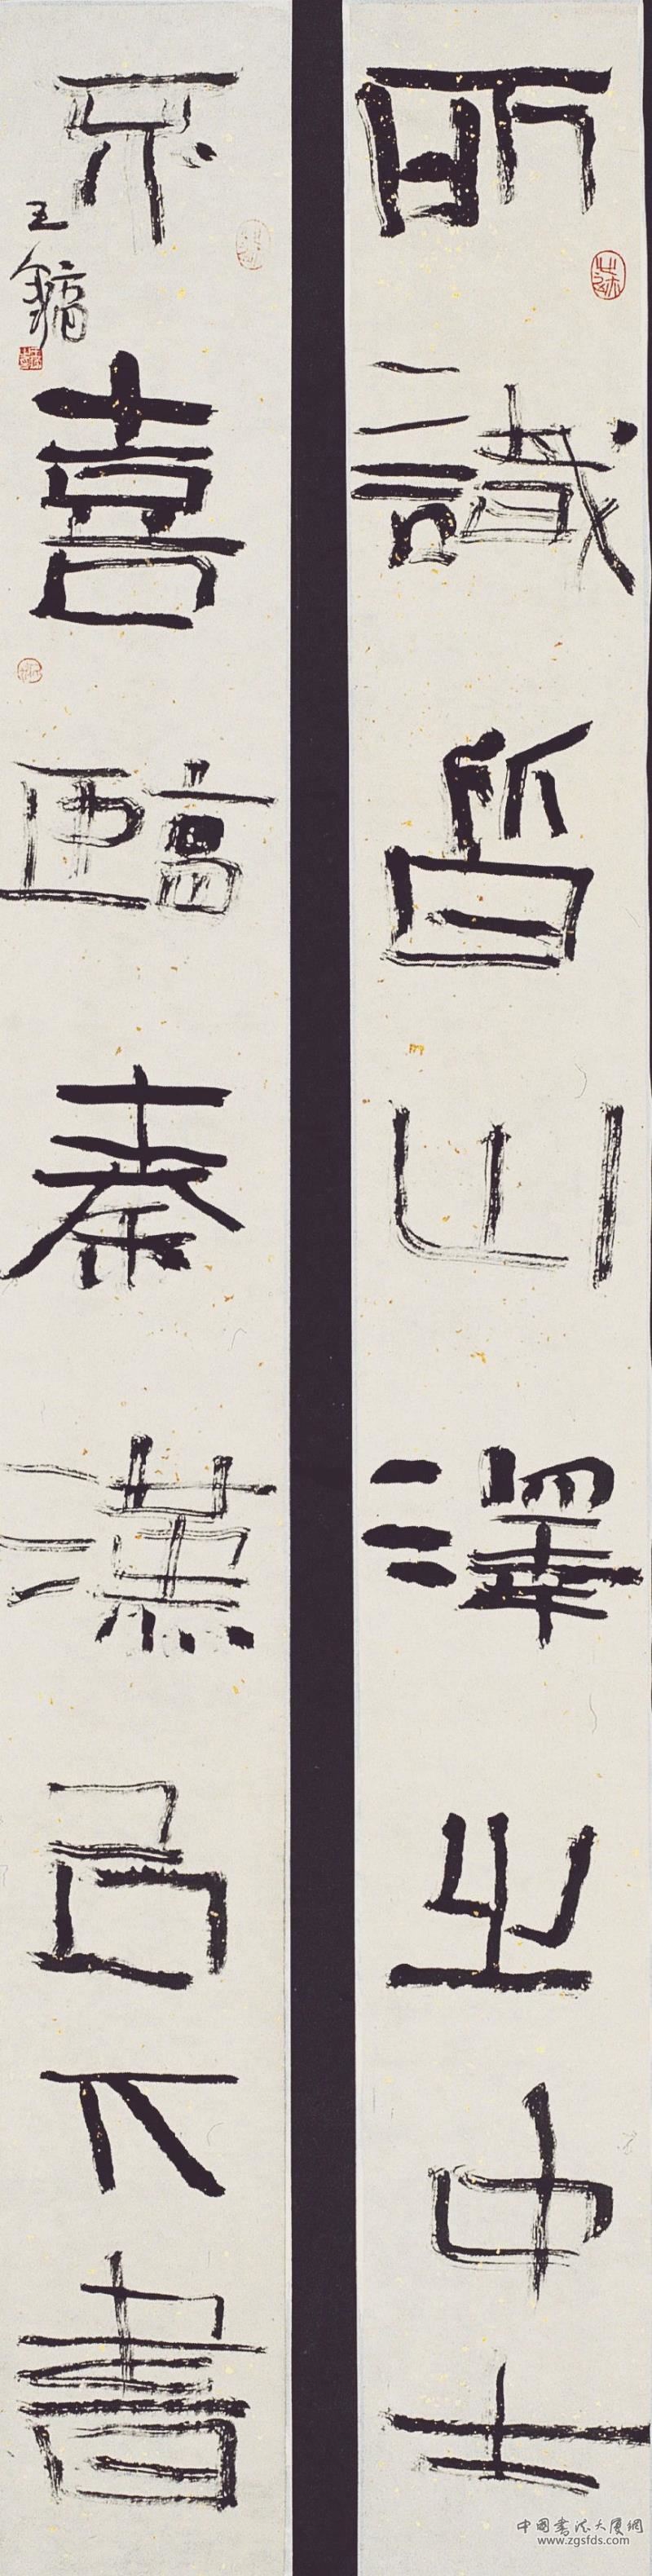 所識皆山澤之中士
不喜臨秦漢㠯下書
王鏞
中國書法大廈網
www.zgsfds.com